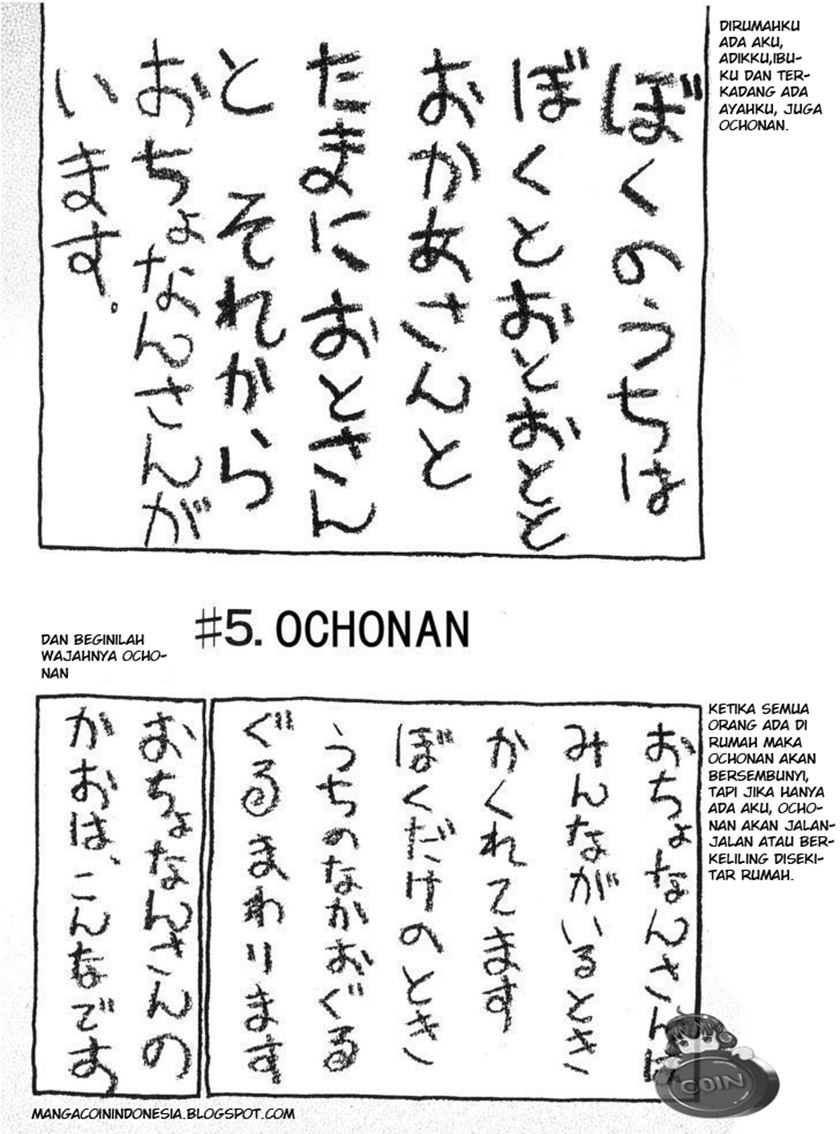 ぼくのうちは
ぼくとおとおとと
おかあさんと
たまにおとさん
と それから
おちょなんさんが
います.
DIRUMAHKU
ADA AKU,
ADIKKU,IBU-
KU DAN TER-
KADANG ADA
AYAHKU, JUGA
OCHONAN.
#5. OCHONAN
おちょなんさんは
みんながいるとき
かくれてます
ぼくだけのとき
うちのなかおぐる
ぐるまわります
KETIKA SEMUA
ORANG ADA DI
RUMAH MAKA
OCHONAN AKAN
BERSEMBUNYI,
TAPI JIKA HANYA
ADA AKU, OCHO-
NAN AKAN JALAN-
JALAN ATAU BER-
KELILING DISEKI-
TAR RUMAH.
おちょなんさんの
かおは、こんなです
DAN BEGINILAH
WAJAHNYA OCHO-
NAN
COIN
MANGACOININDONESIA.BLOGSPOT.COM